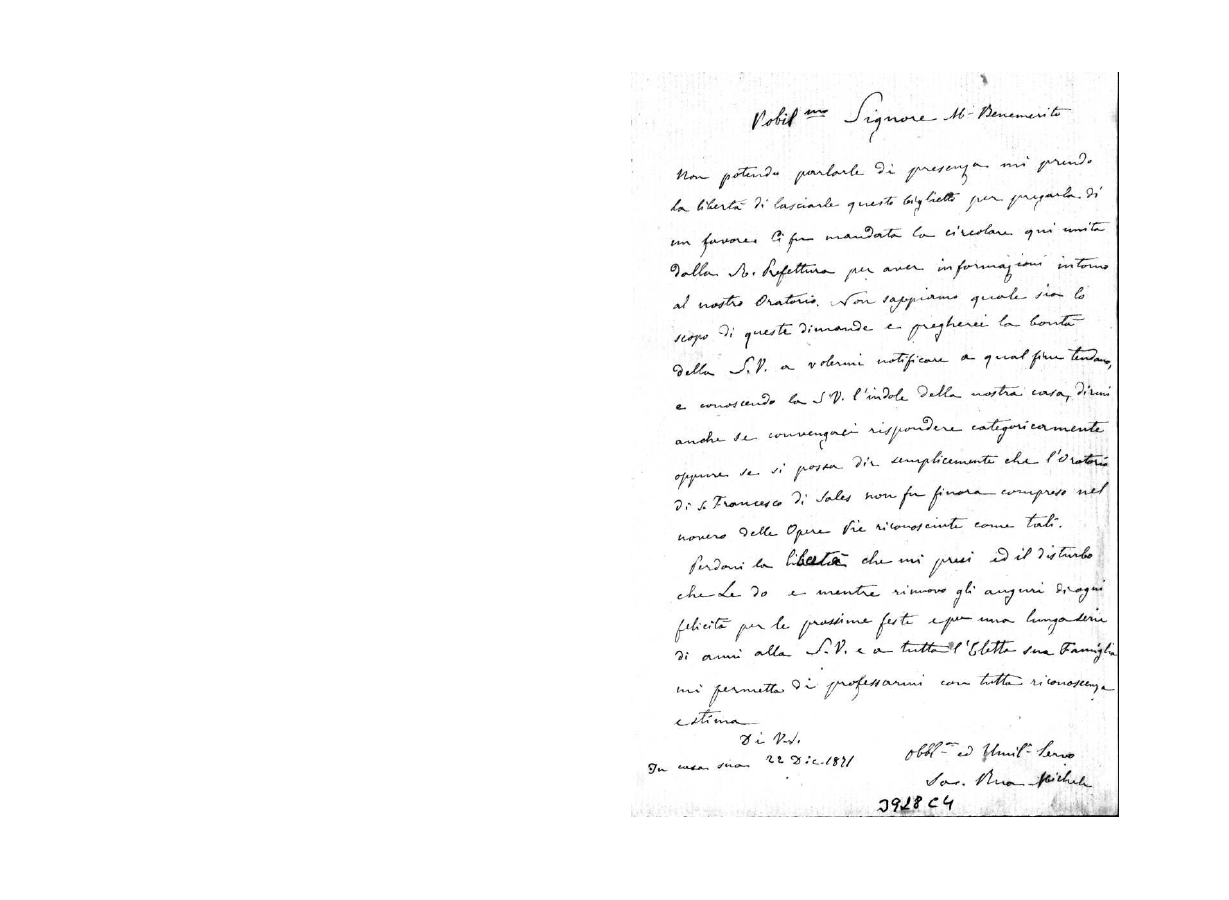 Nobil.mo Signore M. Benemerito
Non potendo parlarle di presenza mi prendo
la libertà di lasciarle questo biglietto per pregarla di
un favore. Ci fu mandata la circolare qui unita
dalla R. Prefettura per aver informazioni intorno
al nostro Oratorio. Non sappiamo quale sia lo
scopo di queste dimande e pregherei la bontà
della S.V. a volermi notificare a qual fine tendano,
e conoscendo la S.V. l'indole della nostra casa, dirmi
anche se convengaci rispondere categoricamente
oppure se si possa dir semplicemente che l'Oratorio
di S. Francesco di Sales non fu finora compreso nel
novero delle Opere Pie riconosciute come tali.
Perdoni la libertà che mi presi ed il disturbo
che Le do e mentre rinnovo gli auguri di ogni
felicità per le prossime feste e per una lunga serie
di anni alla S.V. e a tutta l'Eletta sua Famiglia
mi permetta di professarmi con tutta riconoscenza
e stima
Di V.S.
In casa sua 22 Dic. 1871
Obbl.mo ed Umil.mo Servo
Sac. Rua Michele
3928 C4